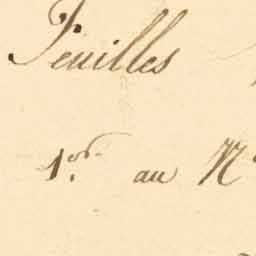 Feuilles
1er. au N